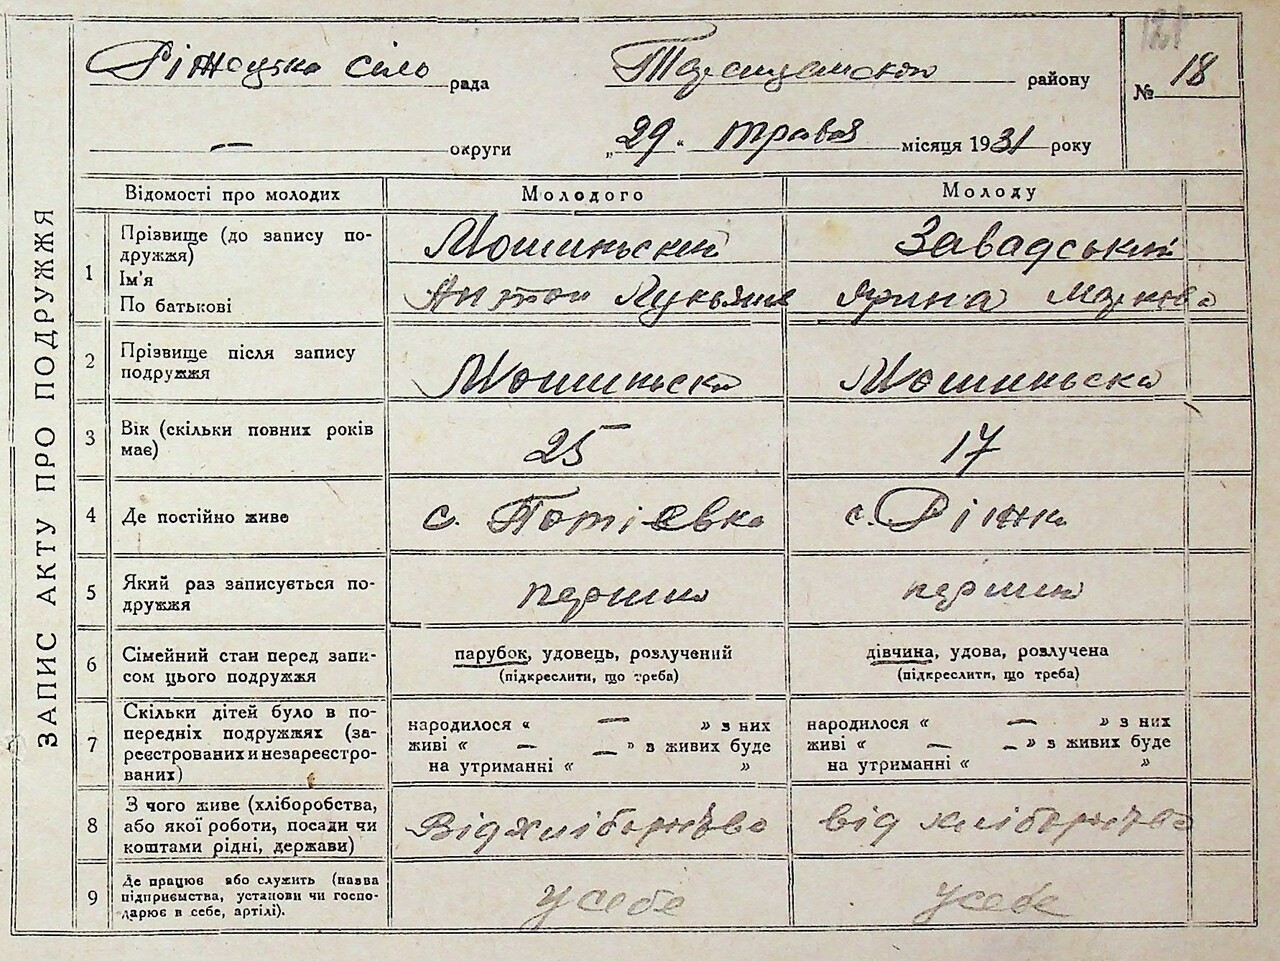 ЗАПИС АКТУ ПРО ПОДРУЖЖЯ
181
Ріжоцька сіль рада
району
№ 18
— округи
„29“ травня місяця 1931 року
Відомості про молодих
Молодого
Молоду
1
Прізвище (до запису по-
дружжя)
Ім'я
По батькові
Мошиньский
Антон Лукьянів
Завадський
Ярина Маркова
2
Прізвище після запису
подружжя
Мошиньски
Мошиньска
3
Вік (скільки повних років
має)
25
17
4
Де постійно живе
с. Потієвка
с. Ріжки
5
Який раз записується по-
дружжя
перший
перший
6
Сімейний стан перед запи-
сом цього подружжя
парубок, удовець, розлучений
(підкреслити, що треба)
дівчина, удова, розлучена
(підкреслити, що треба)
7
Скільки дітей було в по-
передніх подружжах (за-
реєстрованих и незареєстро-
ваних)
народилося « — » з них
живі « — — » з живих буде
на утриманні « »
народилося « — » з них
живі « — — » з живих буде
на утриманні « »
8
З чого живе (хліборобства,
або якої роботи, посади чи
коштами рідні, держави)
Від хліборобства
від хліборобства
9
Де працює або служить (назва
підприємства, установи чи госпо-
дарює в себе, артілі).
у себе
у себе